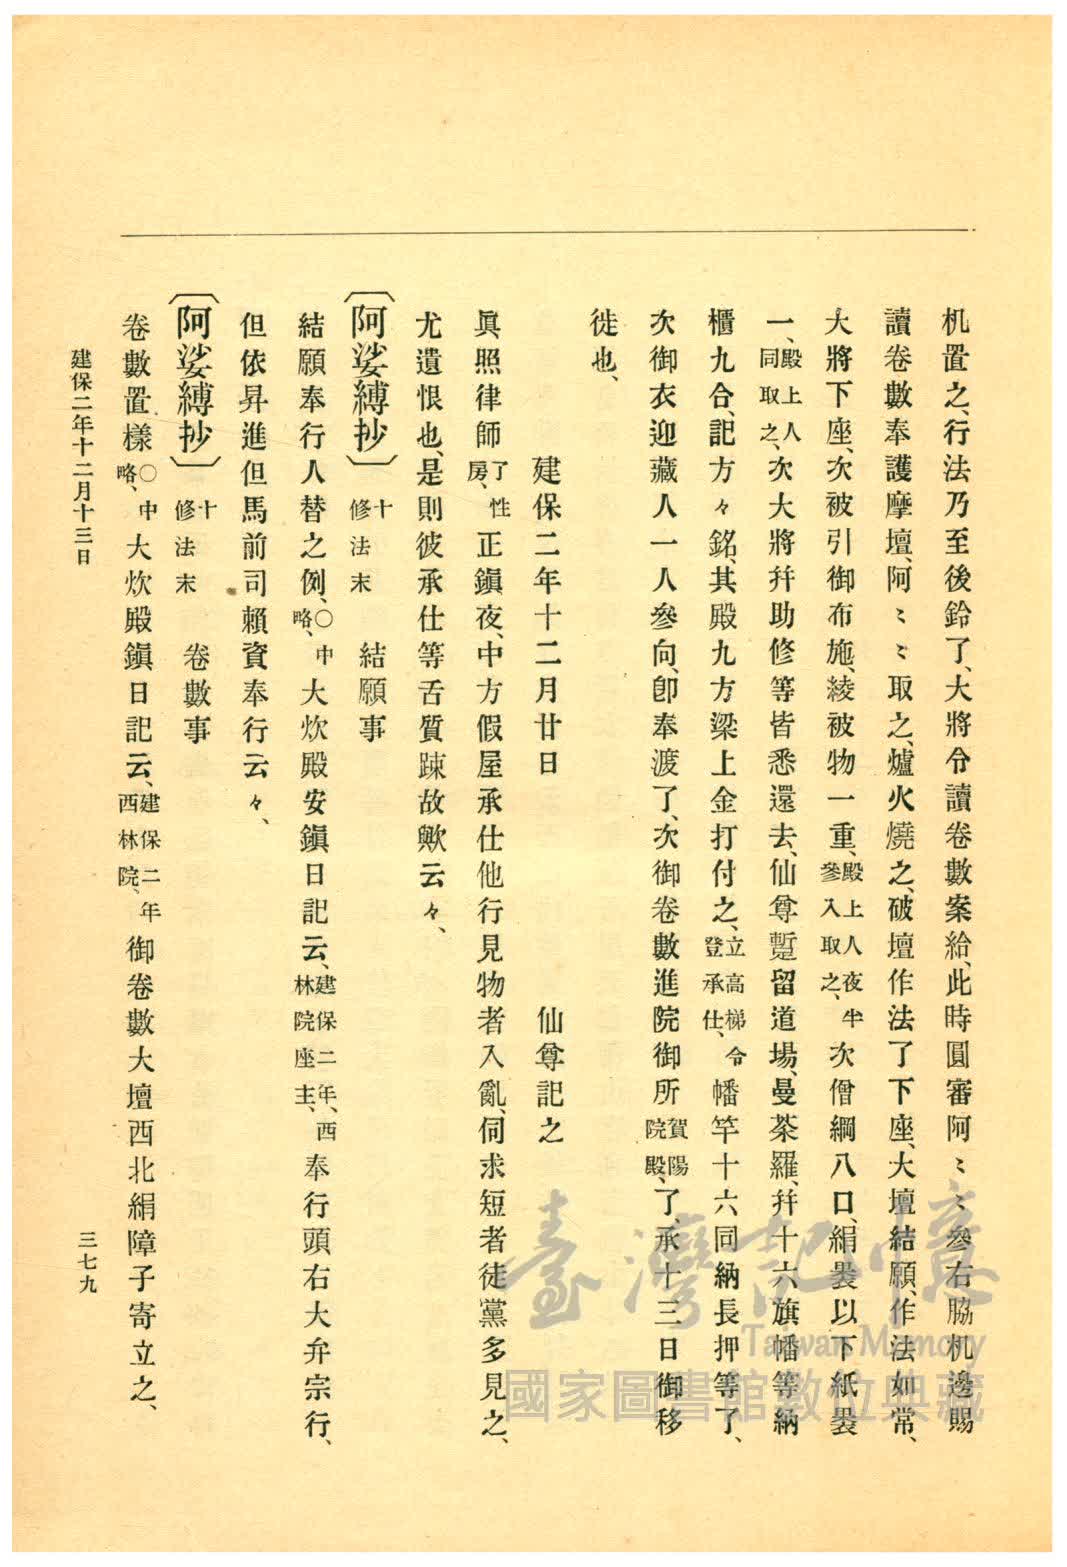 机置之、行法乃至後鈴了、大將令讀卷數案給、此時圓審阿〻〻參右脇机邊賜
讀卷數奉護摩壇、阿〻〻取之、爐火燒之、破壇作法了下座、大壇結願、作法如常、
大將下座、次被引御布施、綾被物一重、殿上人夜半參入取之、次僧綱八口、絹裝以下紙裝
一、殿上人同取之、次大將幷助修等皆悉還去、仙尊蹔留道場、曼荼羅、幷十六旗幡等納
櫃九合、記方々銘、其殿九方梁上金打付之、立高梯令登承仕、幡竿十六同納長押等了、
次御衣迎藏人一人參向、卽奉渡了、次御卷數進院御所賀陽院殿、了、承十三日御移
徙也、
建保二年十二月廿日　仙尊記之
眞照律師了性房、正鎭夜、中方假屋承仕他行見物者入亂、伺求短者徒黨多見之、
尤遺恨也、是則彼承仕等舌質踈故歟云々、
〔阿娑縛抄〕十修法末　結願事
結願奉行人替之例、〇中略、大炊殿安鎭日記云、建保二年、西林院座主、奉行頭右大弁宗行、
但依昇進但馬前司賴資奉行云々、
〔阿娑縛抄〕十修法末　卷數事
卷數置樣〇中略、大炊殿鎭日記云、建保二年西林院、御卷數大壇西北絹障子寄立之、
建保二年十二月十三日
三七九
臺灣記憶
Taiwan Memory
國家圖書館數位典藏